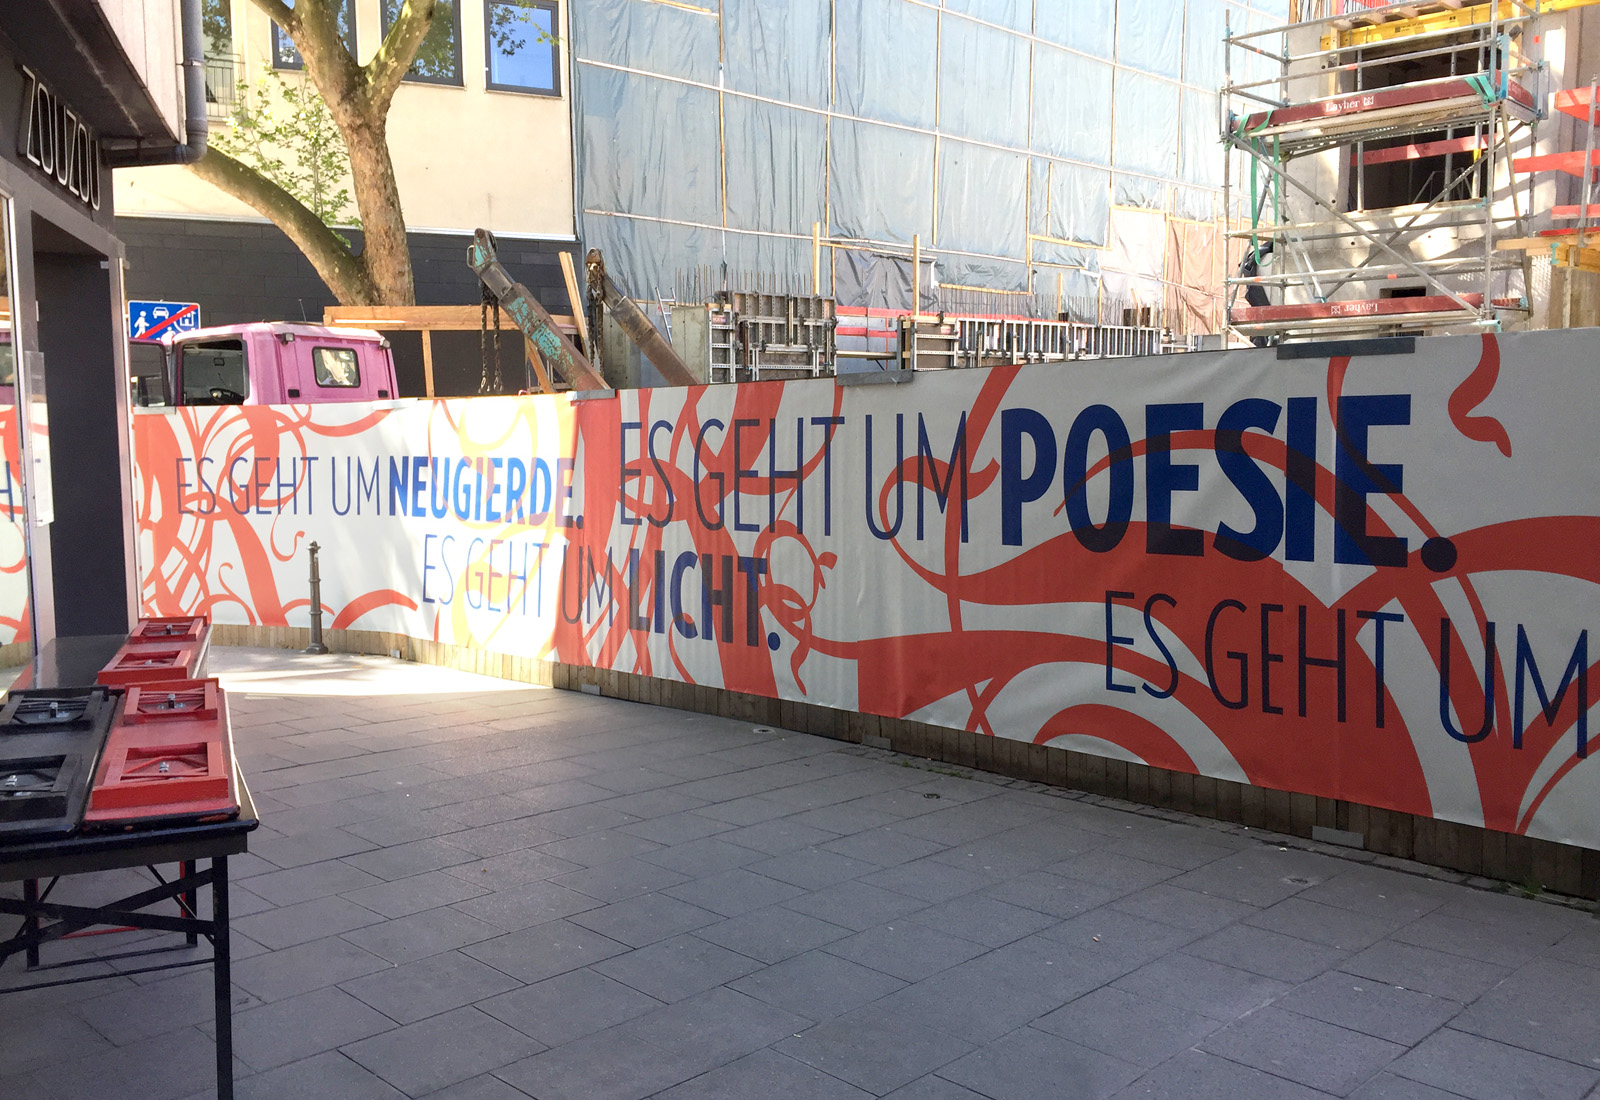 ZOUZOU
ES GEHT UM NEUGIERDE.
ES GEHT UM LICHT.
ES GEHT UM POESIE.
ES GEHT UM
Layher
Layher